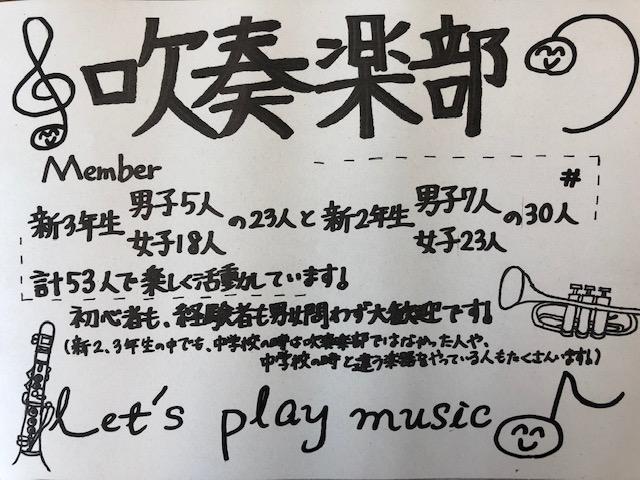 吹奏楽部
Member
#
新3年生 男子5人 女子18人 の23人と 新2年生 男子7人 女子23人 の30人
計53人で楽しく活動しています!
初心者も、経験者も男女問わず大歓迎です!
(新2、3年生の中でも、中学校の時は吹奏楽部ではなかった人や、
中学校の時と違う楽器をやっている人もたくさんいます!)
Let's play music